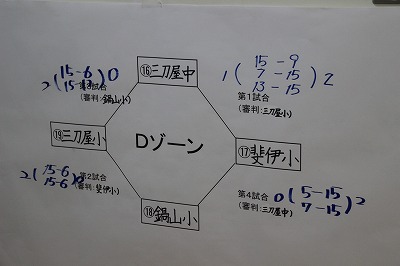 ⑯三刀屋中
2(15-6 15-13)0
第3試合
(審判:鍋山小)
1(15-9 7-15 13-15)2
第1試合
(審判:三刀屋小)
⑲三刀屋小
Dゾーン
⑰斐伊小
2(15-6 15-6)0
第2試合
(審判:斐伊小)
⑱鍋山小
第4試合
(審判:三刀屋中)
0(5-15 7-15)2